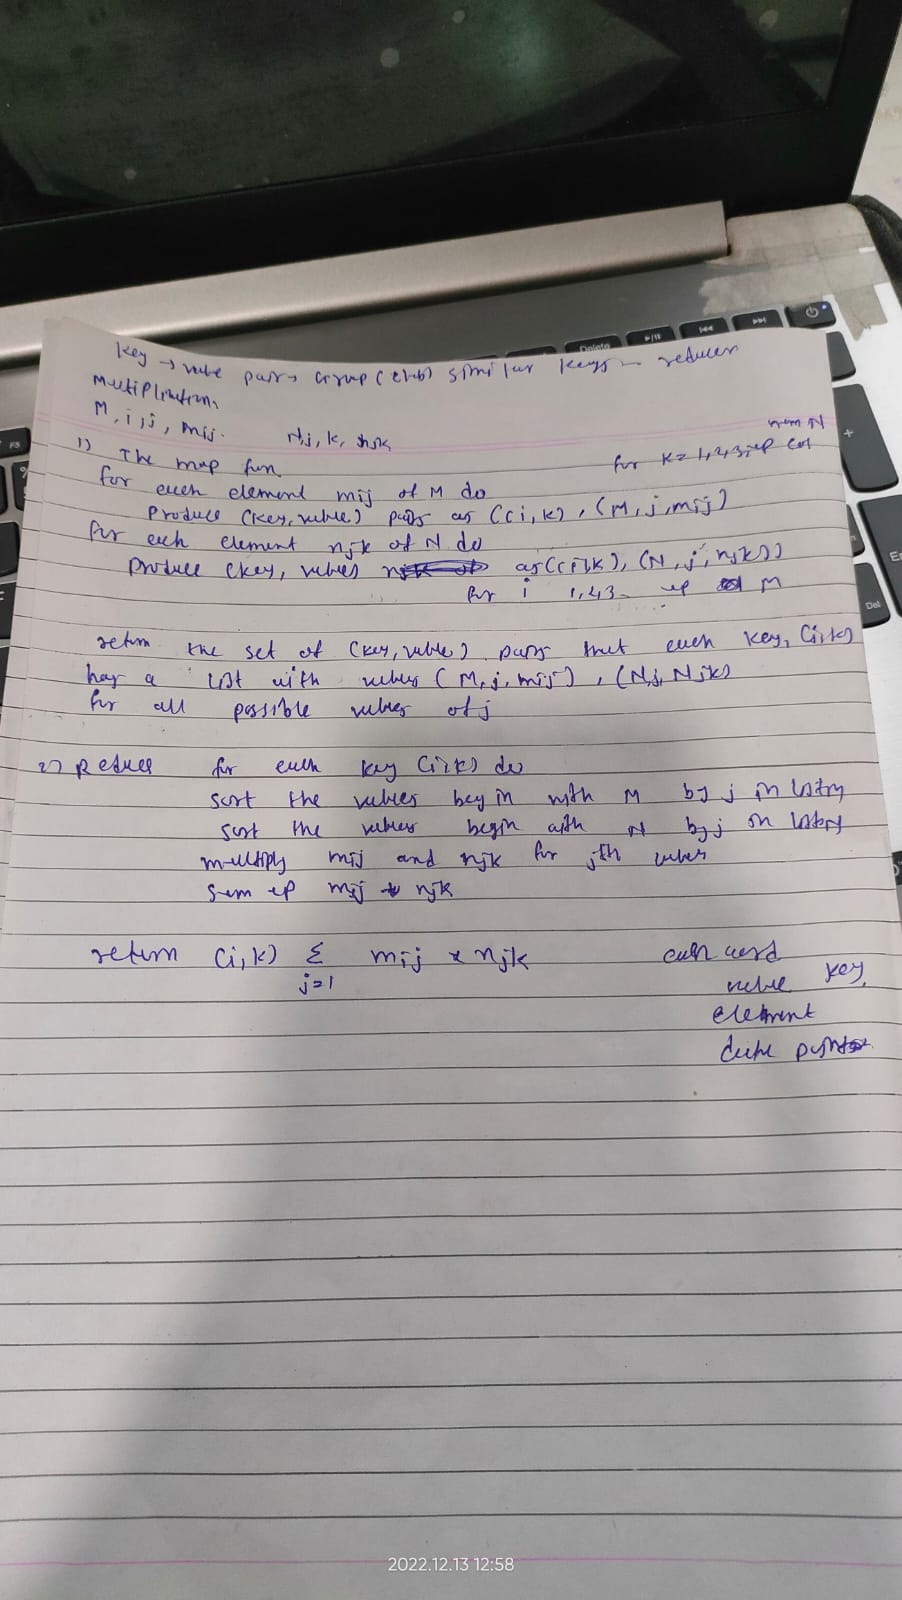 Delete
F5
Del
Key → value pairs Group (club) similar keys – reducer
Multiplication,
M, i, j, mij. N, j, k, njk
num N
1) The map fun for k=1,2,3,.. up col
for each element mij of M do
produce (key, value) pairs as ((i,k), (M, j, mij)
for each element njk of N do
produce (key, values as ((i,k), (N, j, njk))
for i 1,2,3.. up M
return the set of (key, value) pairs that each key, (i,k)
has a list with values (M, j, mij), (N, j, Njk)
for all possible values of j
2) Reduce for each key (i,k) do
sort the values begin with M by j in
sort the values begin with N by j in
multiply mij and njk for jth value
sum up mij * njk
return (i,k) Σ mij x njk
j=1
each word
value key,
element
data points
2022.12.13 12:58